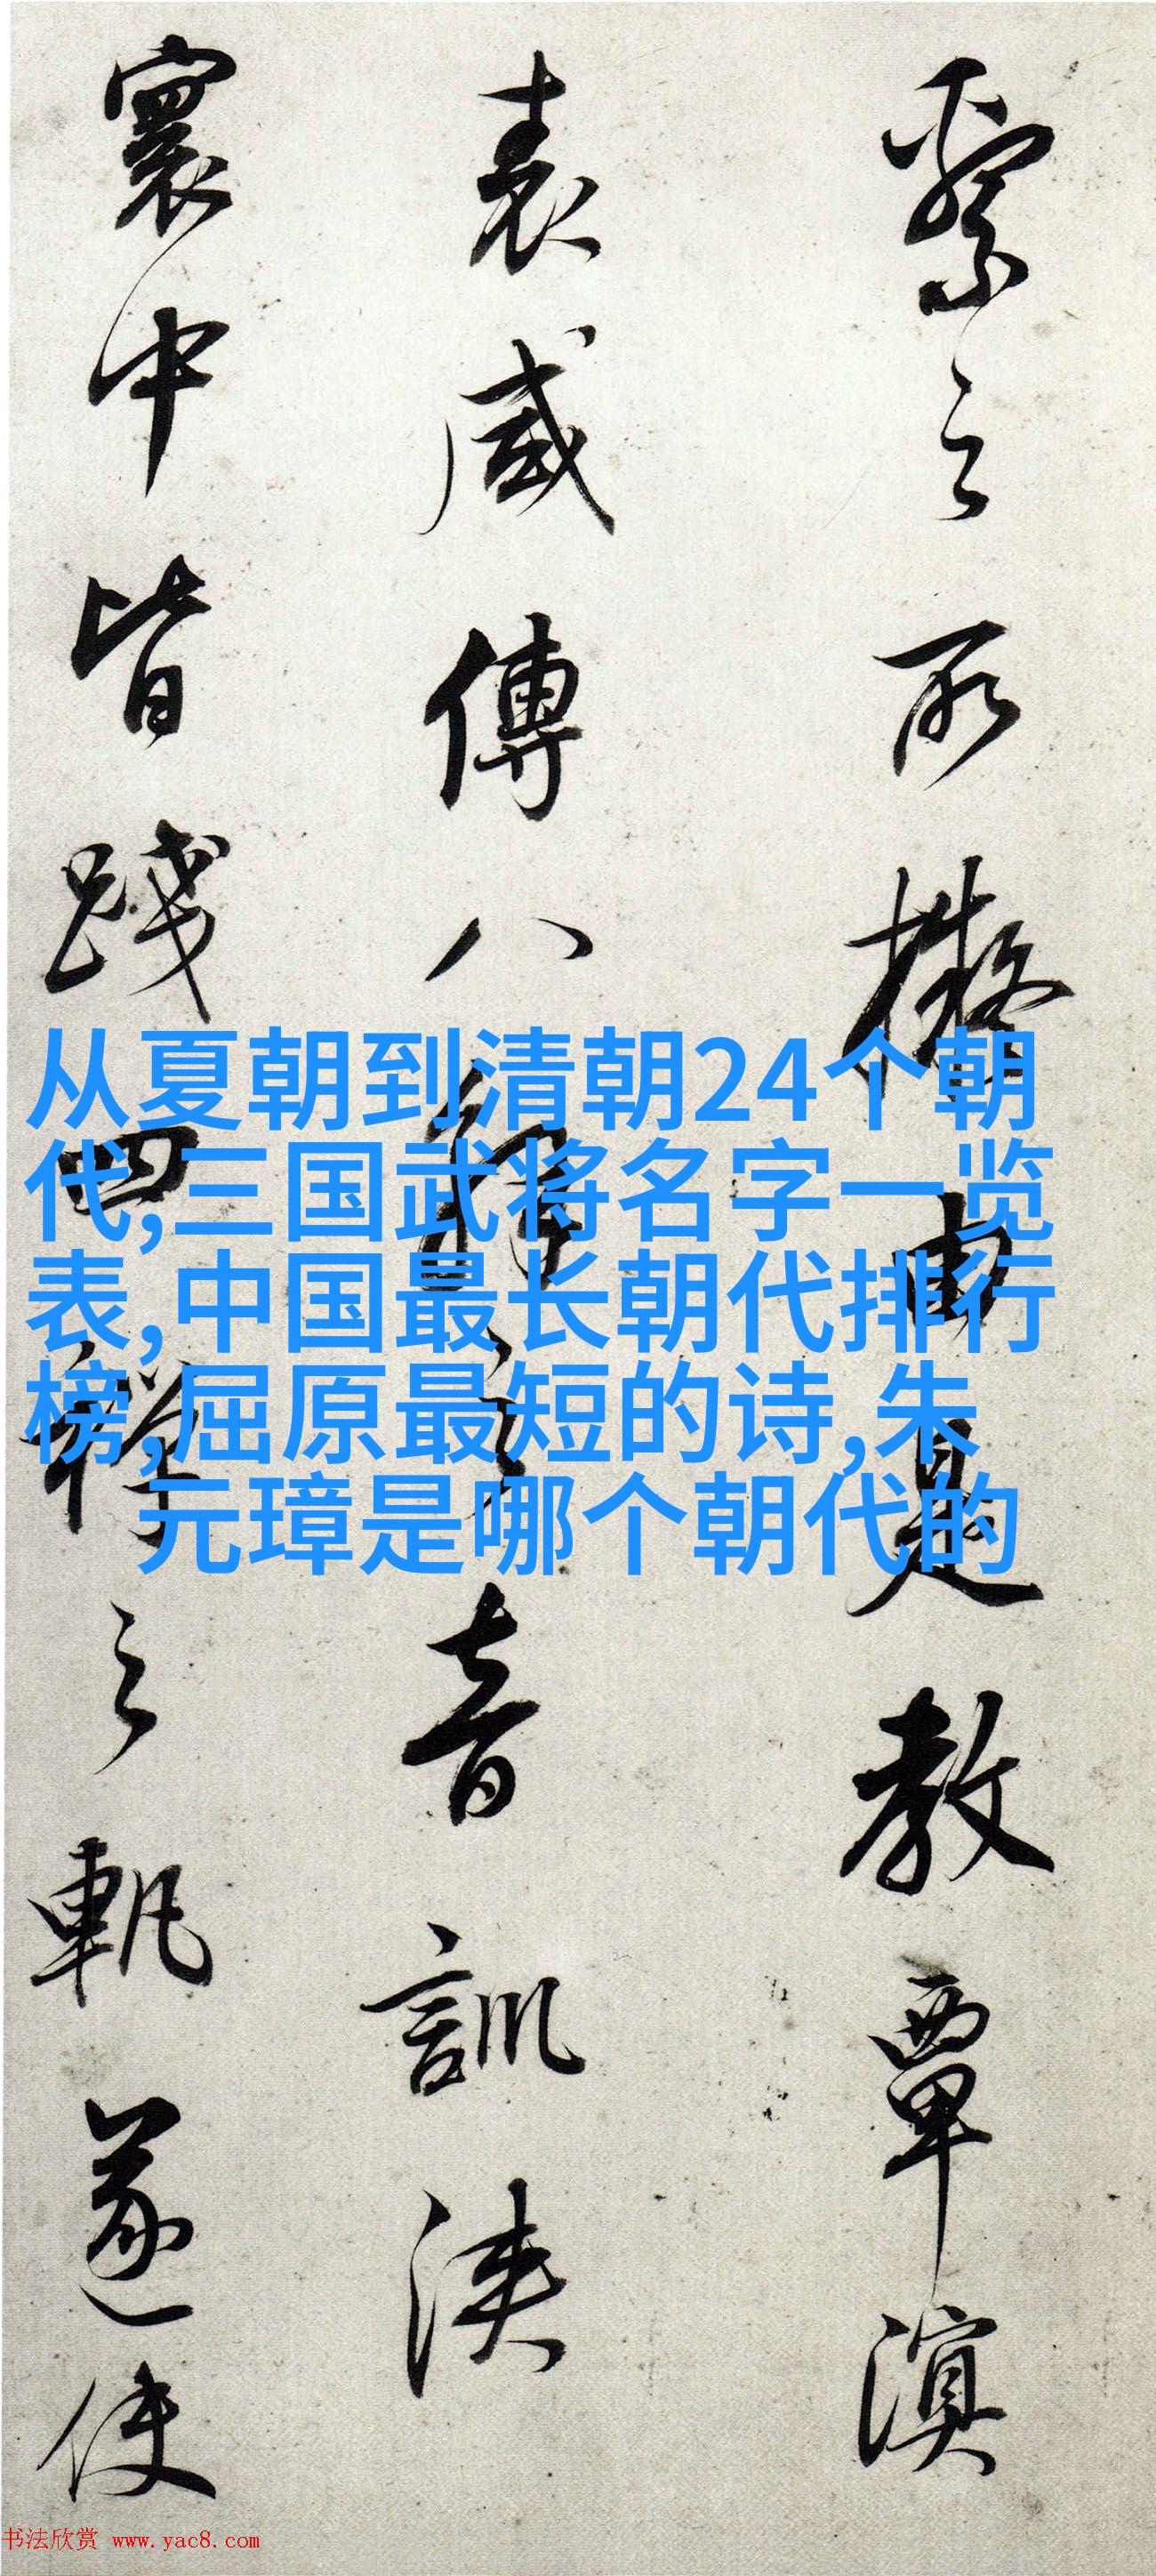 繫之所擬由是教覃溟
表威傳八解之音訓浹
寰中皆踐四禪之軌遂使
从夏朝到清朝24个朝
代,三国武将名字一览
表,中国最长朝代排行
榜,屈原最短的诗,朱
元璋是哪个朝代的
书法欣赏 www.yac8.com